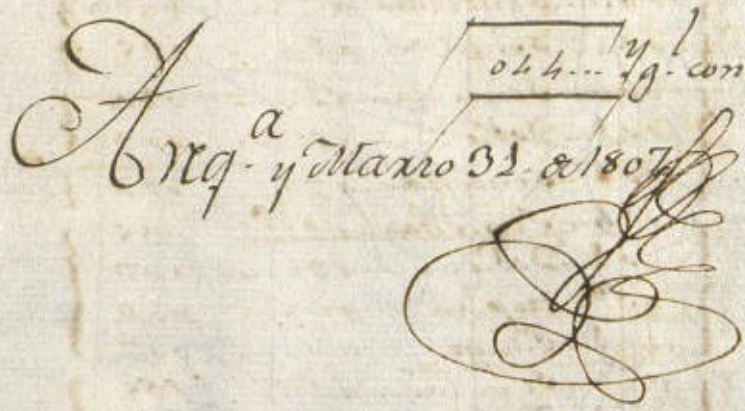 044... Yg.l con
Arq.a y Marzo 31 de 1807